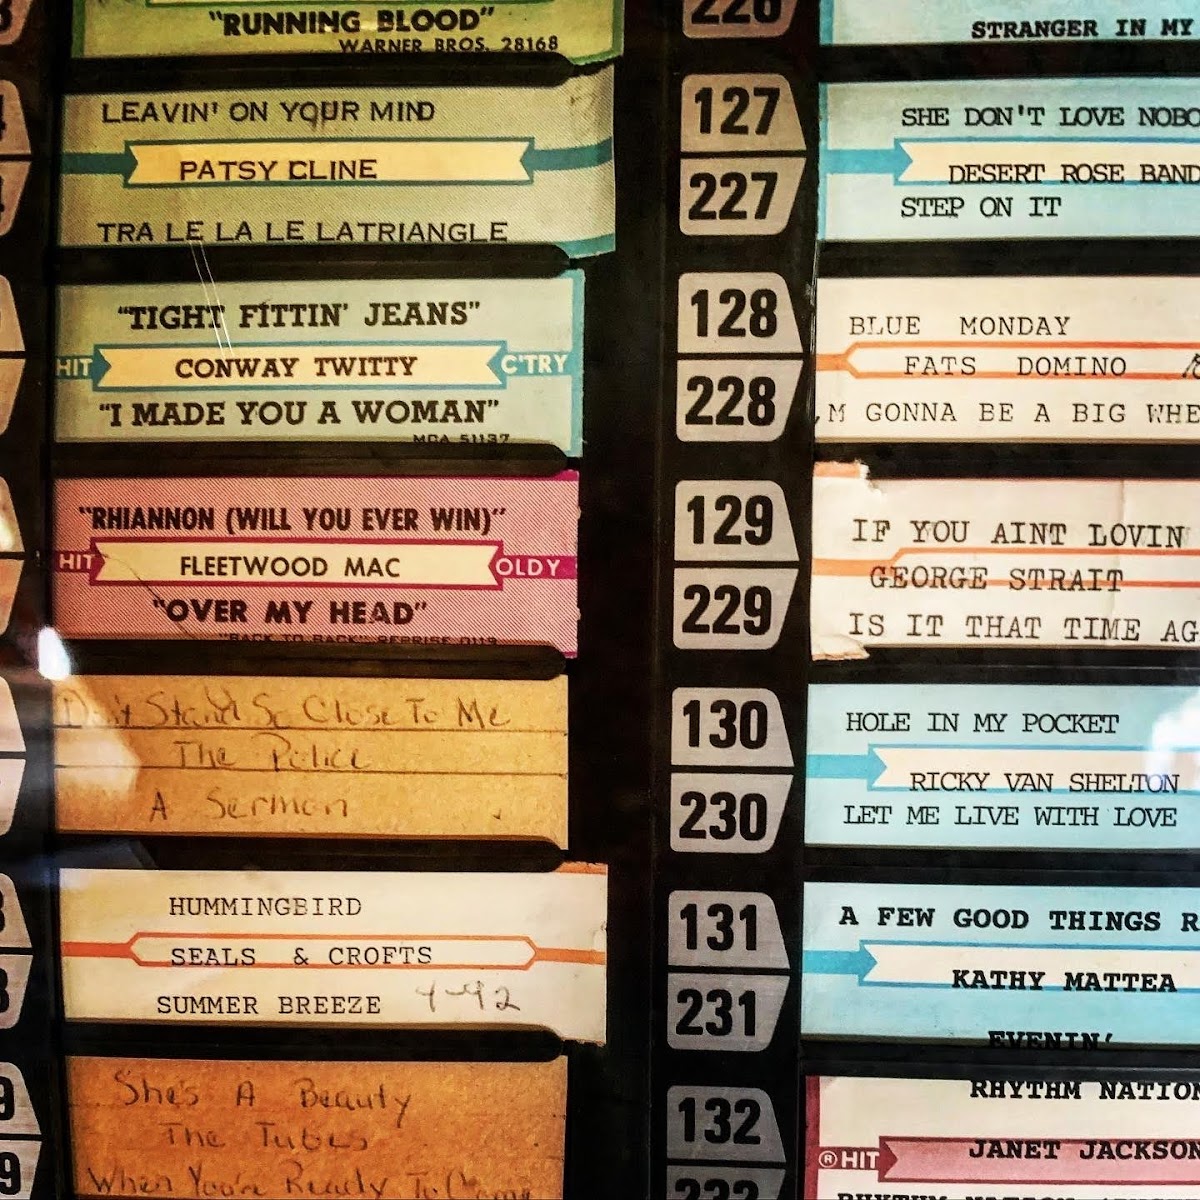 "RUNNING BLOOD"
WARNER BROS. 28168
LEAVIN' ON YOUR MIND
PATSY CLINE
TRA LE LA LE LATRIANGLE
"TIGHT FITTIN' JEANS"
HIT CONWAY TWITTY C'TRY
"I MADE YOU A WOMAN"
MCA 51137
"RHIANNON (WILL YOU EVER WIN)"
HIT FLEETWOOD MAC OLDY
"OVER MY HEAD"
"BACK TO BACK" REPRISE 0119
Don't Stand So Close To Me
The Police
A Sermon
HUMMINGBIRD
SEALS & CROFTS
SUMMER BREEZE 4-92
She's A Beauty
The Tubes
When You're Ready To Come
226
STRANGER IN MY
127
227
SHE DON'T LOVE NOBO
DESERT ROSE BAND
STEP ON IT
128
228
BLUE MONDAY
FATS DOMINO
'M GONNA BE A BIG WHE
129
229
IF YOU AINT LOVIN
GEORGE STRAIT
IS IT THAT TIME AG
130
230
HOLE IN MY POCKET
RICKY VAN SHELTON
LET ME LIVE WITH LOVE
131
231
A FEW GOOD THINGS R
KATHY MATTEA
EVENIN'
132
232
RHYTHM NATION
® HIT JANET JACKSON
RHYTHM NATION